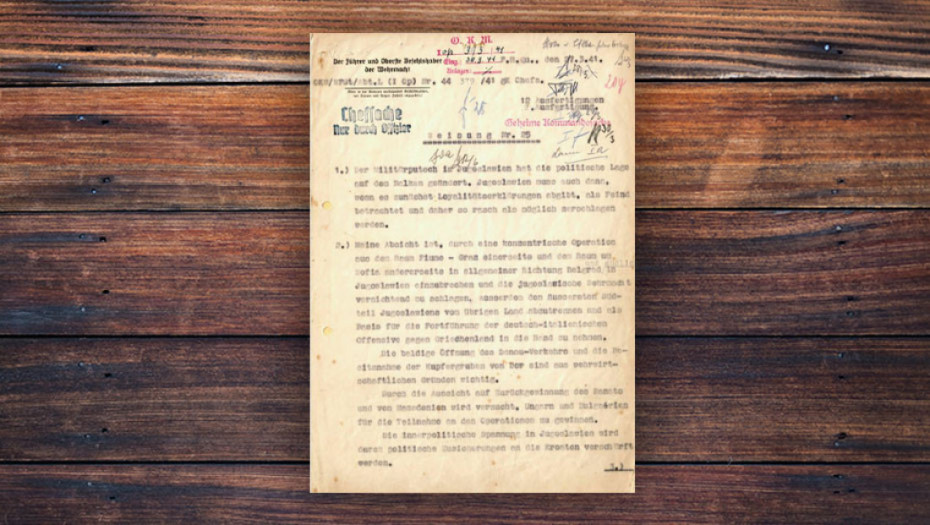 O. K. M.
Der Führer und Oberste Befehlshaber
der Wehrmacht
F.H.Qu., den 27.3.41.
Nr. 44 /41 gK Chefs.
Ausfertigungen
Ausfertigung.
Chefsache
Nur durch Offizier
Geheime Kommandosache
Weisung Nr. 25
1.) Der Militärputsch in Jugoslawien hat die politische Lage
auf dem Balkan geändert. Jugoslawien muss auch dann,
wenn es zunächst Loyalitätserklärungen abgibt, als Feind
betrachtet und daher so rasch als möglich zerschlagen
werden.
2.) Meine Absicht ist, durch eine konzentrische Operation
aus dem Raum Fiume - Graz einerseits und dem Raum um
Sofia andererseits in allgemeiner Richtung Belgrad in
Jugoslawien einzubrechen und die jugoslawische Wehrmacht
vernichtend zu schlagen, ausserdem den äussersten Süd-
teil Jugoslawiens vom übrigen Land abzutrennen und als
Basis für die Fortführung der deutsch-italienischen
Offensive gegen Griechenland in die Hand zu nehmen.
Die baldige Öffnung des Donau-Verkehrs und die Be-
sitznahme der Kupfergruben von Bor sind aus wehrwirt-
schaftlichen Gründen wichtig.
Durch die Aussicht auf Zurückgewinnung des Banats
und von Macedonien wird versucht, Ungarn und Bulgarien
für die Teilnahme an den Operationen zu gewinnen.
Die innerpolitische Spannung in Jugoslawien wird
durch politische Zusicherungen an die Kroaten verschärft
werden.
3.)